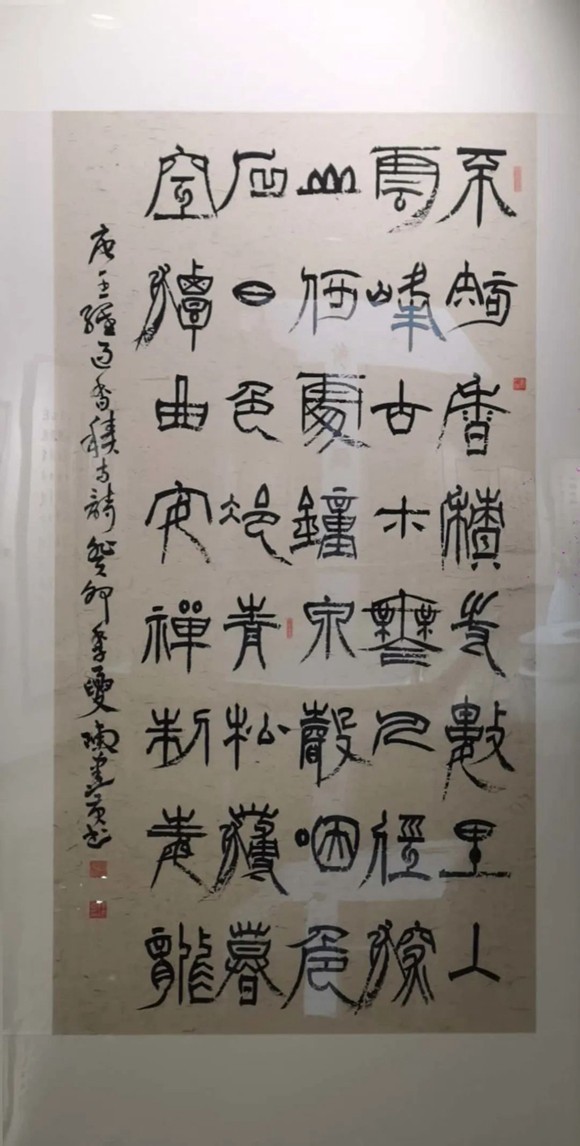 不知香積寺數里入
雲峰古木無人徑深
山何處鐘泉聲咽危
石日色冷青松薄暮
空潭曲安禪制毒龍
唐王維過香積寺詩癸卯季夏書